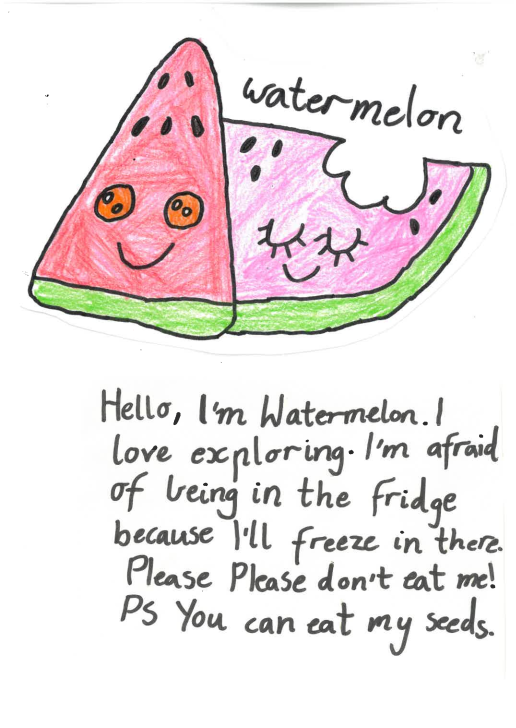 watermelon
Hello, I'm Watermelon. I
love exploring. I'm afraid
of being in the fridge
because I'll freeze in there.
Please Please don't eat me!
PS You can eat my seeds.